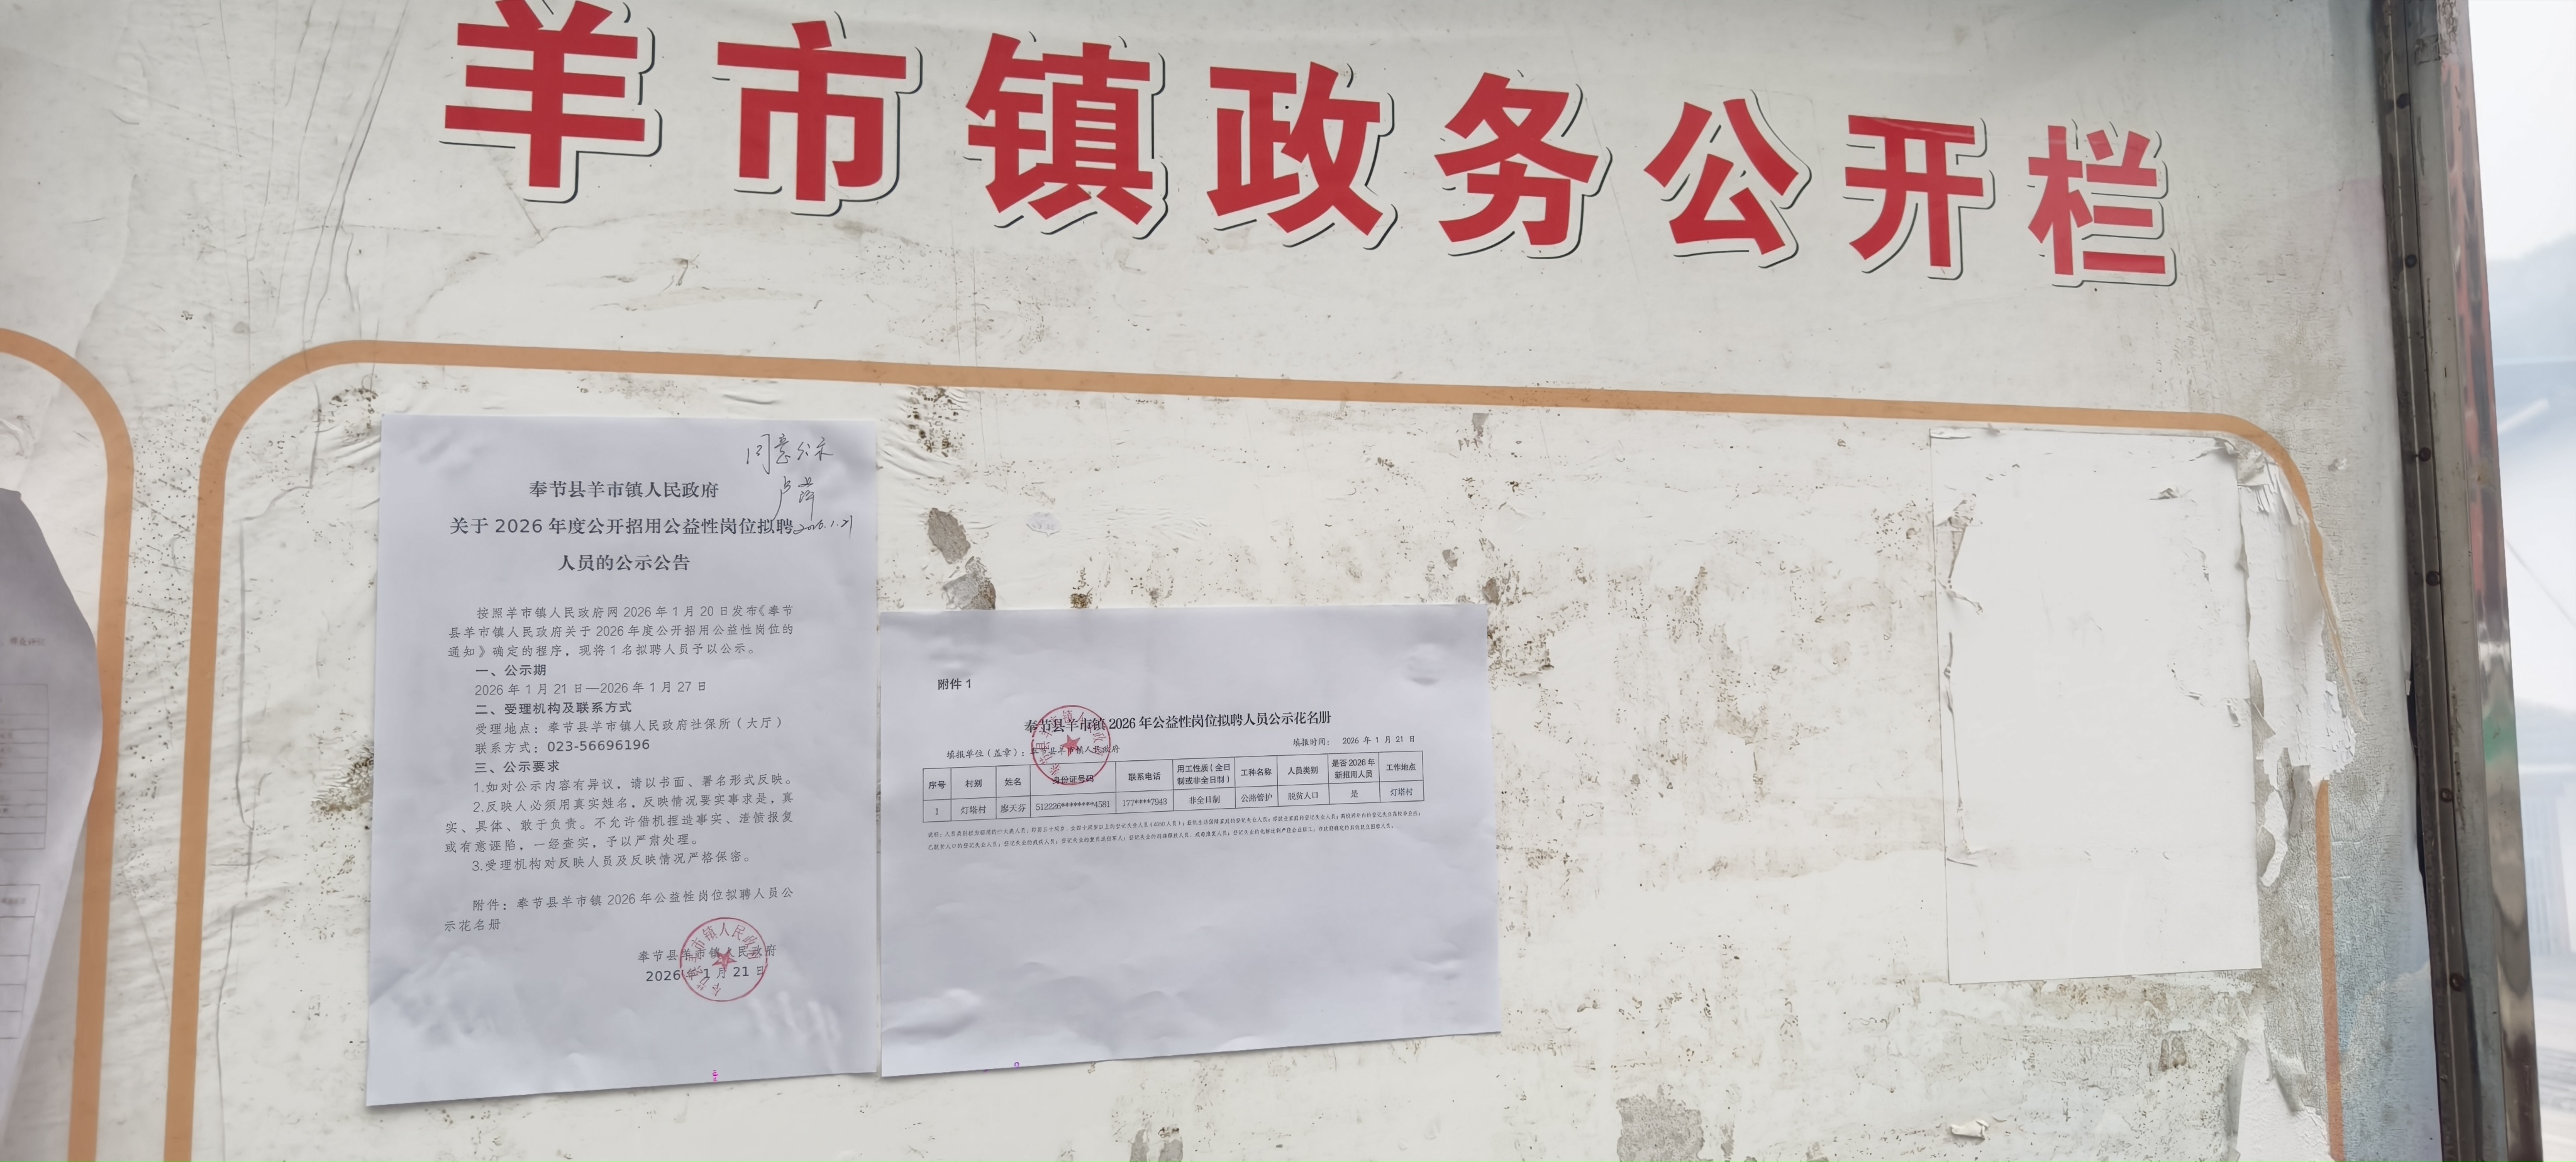 羊市镇政务公开栏
同意公示
2026.1.21
奉节县羊市镇人民政府
关于 2026 年度公开招用公益性岗位拟聘
人员的公示公告
按照羊市镇人民政府网 2026 年 1 月 20 日发布《奉节
县羊市镇人民政府关于 2026 年度公开招用公益性岗位的
通知》确定的程序，现将 1 名拟聘人员予以公示。
一、公示期
2026 年 1 月 21 日—2026 年 1 月 27 日
二、受理机构及联系方式
受理地点：奉节县羊市镇人民政府社保所（大厅）
联系方式：023-56696196
三、公示要求
1.如对公示内容有异议，请以书面、署名形式反映。
2.反映人必须用真实姓名，反映情况要实事求是，真
实、具体、敢于负责。不允许借机捏造事实、泄愤报复
或有意诬陷，一经查实，予以严肃处理。
3.受理机构对反映人员及反映情况严格保密。
附件：奉节县羊市镇 2026 年公益性岗位拟聘人员公
示花名册
奉节县羊市镇人民政府
2026 年 1 月 21 日
附件 1
奉节县羊市镇 2026 年公益性岗位拟聘人员公示花名册
填报单位（盖章）：奉节县羊市镇人民政府 填报时间： 2026 年 1 月 21 日
序号 村别 姓名 身份证号码 联系电话 用工性质（全日制或非全日制） 工种名称 人员类别 是否 2026 年新招用人员 工作地点
1 灯塔村 廖天芬 512226********4581 177****7943 非全日制 公路管护 脱贫人口 是 灯塔村